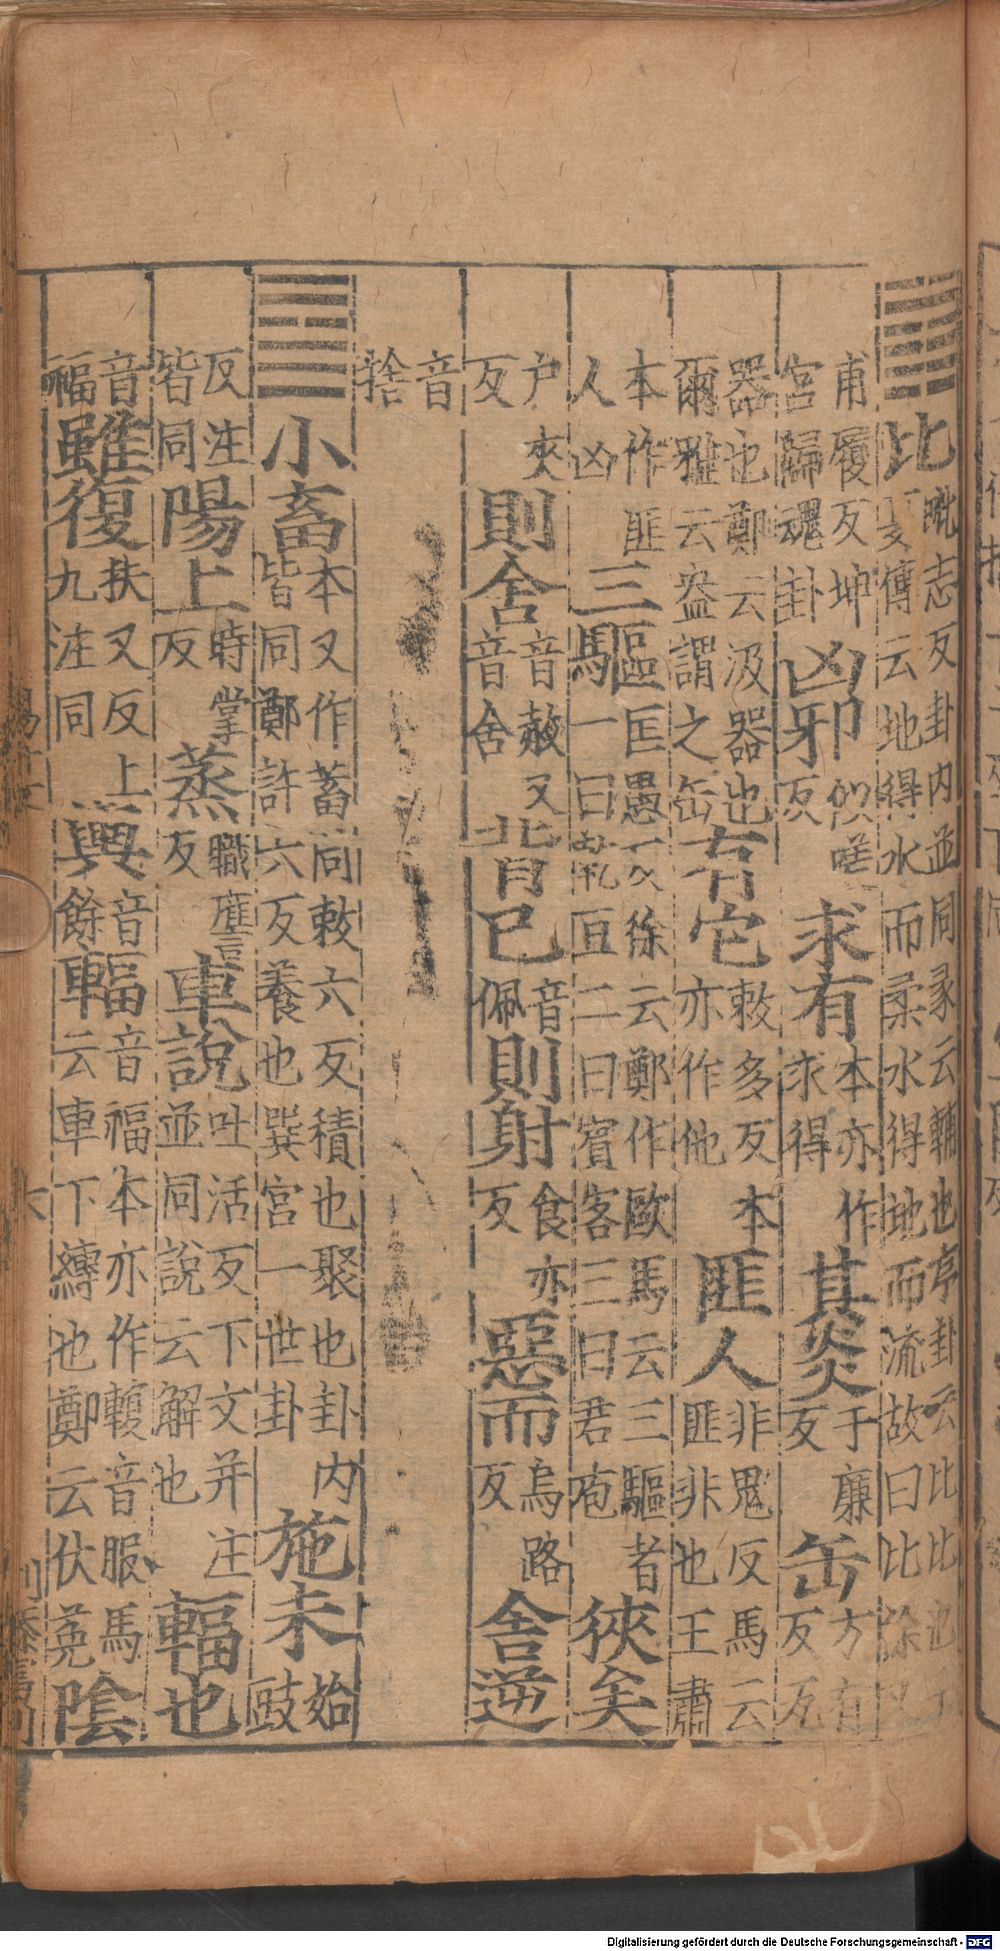 ䷇比毗志反卦内並同彖云輔也序卦云比比也子夏傳云地得水而柔水得地而流故曰比徐又
甫履反坤宮歸魂卦 凶邪似嗟反 求有本亦作求得 其炎于廉反 缶方有反瓦
器也鄭云汲器也爾雅云盎謂之缶 有它敕多反本亦作他 匪人非鬼反馬云匪非也王肅
本作匪人凶 三驅匡愚反徐云鄭作敺馬云三驅者一曰乾豆二曰賓客三曰君庖 狹矣
户夾反 則舍音赦又音舍 背己音佩 則射食亦反 惡而烏路反 舍逆
音捨
䷈小畜本又作蓄同敕六反積也聚也卦内皆同鄭許六反養也巽宮一世卦 施未始豉
反注皆同 陽上時掌反 蒸職膺反 車說吐活反下文并注並同說云解也 輻也
音福 雖復扶又反上九注同 輿音餘 輻音福本亦作輹音服馬云車下縛也鄭云伏菟 陰
Digitalisierung gefördert durch die Deutsche Forschungsgemeinschaft - DFG